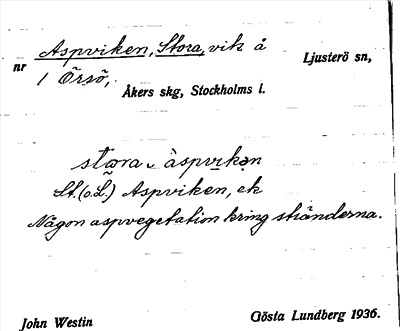 Aspviken, Stora, vik å Ljusterö sn,
nr 1 Örsö,
Åkers skg, Stockholms l.
stœra ˬ àspvıkən
St. (o. L.) Aspviken, ek
Någon aspvegetation kring stränderna.
John Westin Gösta Lundberg 1936.